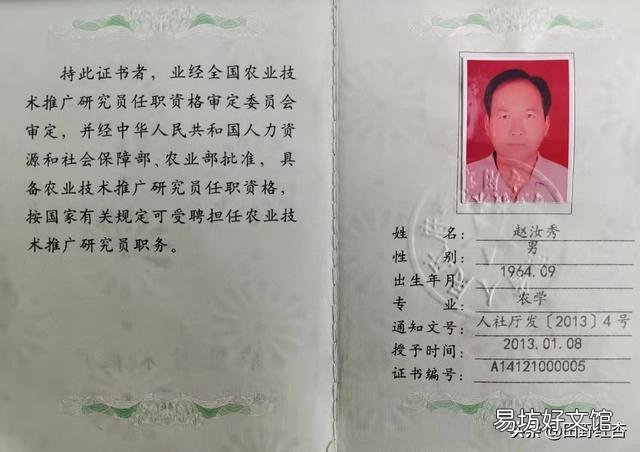 持此证书者，业经全国农业技
术推广研究员任职资格审定委员会
审定，并经中华人民共和国人力资
源和社会保障部、农业部批准，具
备农业技术推广研究员任职资格，
按国家有关规定可受聘担任农业技
术推广研究员职务。
姓 名：赵汝秀
性 别：男
出生年月：1964.09
专 业：农学
通知文号：人社厅发〔2013〕4号
授予时间：2013.01.08
证书编号：A14121000005
易坊好文馆